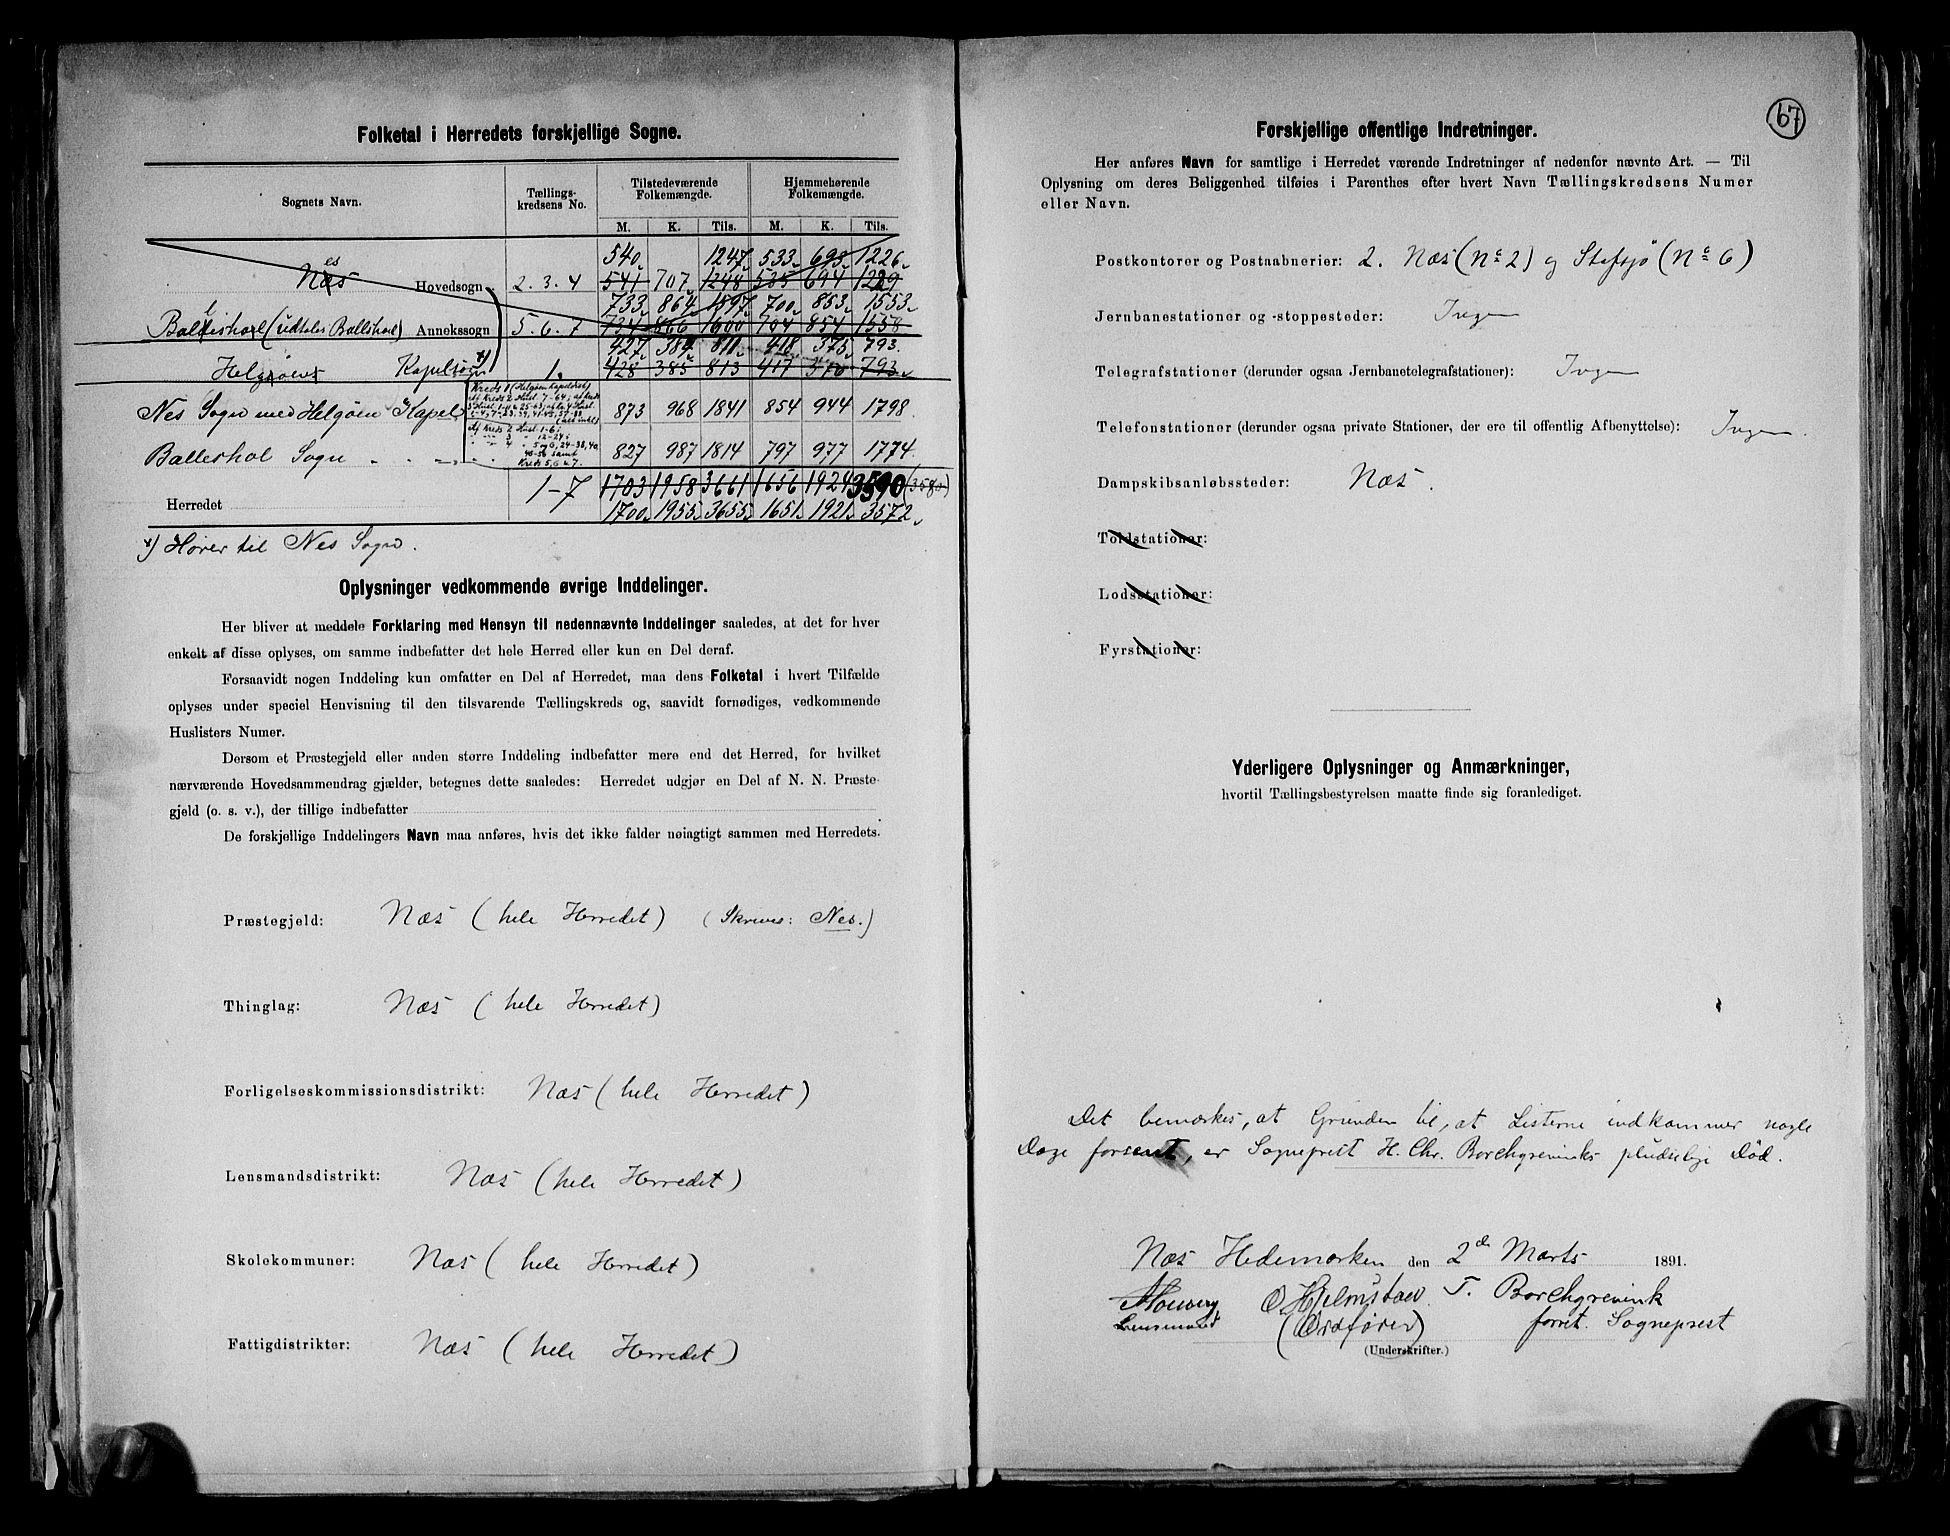 Folketal i Herredets forskjellige Sogne.
Sognets Navn. Tællings-kredsens No. Tilstedeværende Folkemængde. Hjemmehørende Folkemængde.
M. K. Tils. M. K. Tils.
540 1247 533 693 1226
Næs es Hovedsogn 2. 3. 4 541 707 1248 535 694 1229
733 864 1897 700 853 1553
(udtales Balleshol) Annekssogn 5. 6. 7 734 866 1600 704 854 1558
427 384 811 418 375 793
Kapelsogn x) 1. 428 385 813 417 793
Nes Sogn med Helgøen Kapel 873 968 1841 854 944 1798
Balleshol Sogn 827 987 1814 797 977 1774
Kreds 5, 6 & 7.
Herredet 1-7 1703 1958 3661 1656 1924 3590 (3580)
1700 1955 3655 1651 1921 3572
x) Hører til Nes Sogn.
Oplysninger vedkommende øvrige Inddelinger.
Her bliver at meddele Forklaring med Hensyn til nedennævnte Inddelinger saaledes, at det for hver
enkelt af disse oplyses, om samme indbefatter det hele Herred eller kun en Del deraf.
Forsaavidt nogen Inddeling kun omfatter en Del af Herredet, maa dens Folketal i hvert Tilfælde
oplyses under speciel Henvisning til den tilsvarende Tællingskreds og, saavidt fornødiges, vedkommende
Huslisters Numer.
Dersom et Præstegjeld eller anden større Inddeling indbefatter mere end det Herred, for hvilket
nærværende Hovedsammendrag gjælder, betegnes dette saaledes: Herredet udgjør en Del af N. N. Præste-
gjeld (o. s. v.), der tillige indbefatter
De forskjellige Inddelingers Navn maa anføres, hvis det ikke falder nøiagtigt sammen med Herredets.
Præstegjeld: Næs (hele Herredet) (Skrives: Nes.)
Thinglag: Næs (hele Herredet)
Forligelseskommissionsdistrikt: Næs (hele Herredet)
Lensmandsdistrikt: Næs (hele Herredet)
Skolekommuner: Næs (hele Herredet)
Fattigdistrikter: Næs (hele Herredet)
67
Forskjellige offentlige Indretninger.
Her anføres Navn for samtlige i Herredet værende Indretninger af nedenfor nævnte Art. — Til
Oplysning om deres Beliggenhed tilføies i Parenthes efter hvert Navn Tællingskredsens Numer
eller Navn.
Postkontorer og Postaabnerier: 2. Næs (No 2) og Stafsjø (No 6)
Jernbanestationer og -stoppesteder: Ingen
Telegrafstationer (derunder ogsaa Jernbanetelegrafstationer): Ingen
Telefonstationer (derunder ogsaa private Stationer, der ere til offentlig Afbenyttelse): Ingen.
Dampskibsanløbssteder: Næs.
Toldstationer:
Lodsstationer:
Fyrstationer:
Yderligere Oplysninger og Anmærkninger,
hvortil Tællingsbestyrelsen maatte finde sig foranlediget.
Det bemærkes, at Grunden til, at Listerne indkommer nogle
Dage forsent, er Sogneprest H. Chr. Borchgrevinks pludselige Død.
Næs Hedemarken den 2den Marts 1891.
O Hjelmstad T. Borchgrevink
Lensmand (Ordfører) forret. Sogneprest
(Underskrifter.)